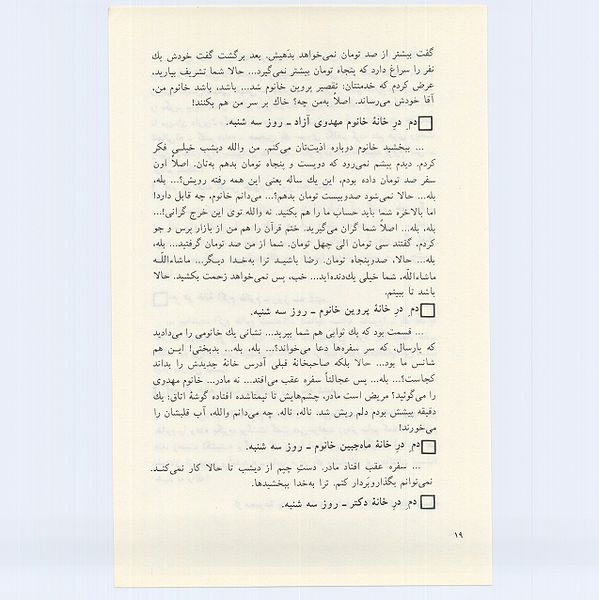 گفت بیشتر از صد تومان نمی‌خواهد بدهیش. بعد برگشت گفت خودش یك
نفر را سراغ دارد که پنجاه تومان بیشتر نمی‌گیرد... حالا شما تشریف بیارید،
عرض کردم که خدمتتان: تقصیر پروین خانوم شد... باشد، باشد خانوم من،
آقا خودش می‌رساند. اصلاً به‌من چه؟ خاك بر سر من هم بکنند!
□ دمِ درِ خانهٔ خانوم مهدوی آزاد ـ روز سه شنبه.
... ببخشید خانوم دوباره اذیت‌تان می‌کنم. من والله دیشب خیلـی فکر
کردم. دیدم پیشم نمی‌رود که دویست و پنجاه تومان بدهم به‌تان. اصلاً اون
سفر صد تومان داده بودم، این یك ساله یعنی این همه رفته رویش؟... بله،
بله... حالا نمی‌شود صدوبیست تومان بدهم؟... می‌دانم خانوم، چه قابل دارد!
اما بالاخره شما باید حساب ما را هم بکنید. نه والله توی این خرج گرانی!...
بله، بله... اصلاً شما گران می‌گیرید. ختم قرآن را هم من از بازار پرس و جو
کردم، گفتند سی تومان الی چهل تومان. شما از من صد تومان گرفتید... بله،
بله... حالا، صدوپنجاه تومان. رضا باشیـد ترا به‌خدا دیگـر... ماشاءاللّـه
ماشاءاللّه، شما خیلی یك‌دنده‌اید... خب، پس نمی‌خواهد زحمت بکشید. حالا
باشد تا ببینم.
□ دمِ درِ خانهٔ پروین خانوم ـ روز سه شنبه.
... قسمت بود که یك ثوابی هم شما ببرید... نشانی یك خانومی را می‌دادید
که پارسال، که سر سفره‌ها دعا می‌خواند؟... بله، بله... بدبختی! ایـن هم
شانس ما بود... حالا بلکه صاحبخانهٔ قبلی آدرس خانهٔ جدیدش را بداند
کجاست؟... بله... پس عجالتاً سفره عقب می‌افتد... نه مادر... خانوم مهدوی
را می‌گوئید؟ مریض است مادر، چشم‌هایش تا نیمتاشده افتاده گوشهٔ اتاق؛ یك
دقیقه پیشش بودم دلم ریش شد. ناله، ناله. چه می‌دانم والله، آب قلبشان را
می‌خورند!
□ دمِ درِ خانهٔ ماه‌جبین خانوم ـ روز سه شنبه.
... سفره عقب افتاد مادر. دستِ چپم از دیشب تا حالا کار نمی‌کنـد.
نمی‌توانم بگذاروبَردار کنم. ترا به‌خدا ببخشیدها.
□ دمِ درِ خانهٔ دکتر ـ روز سه شنبه.
۱۹